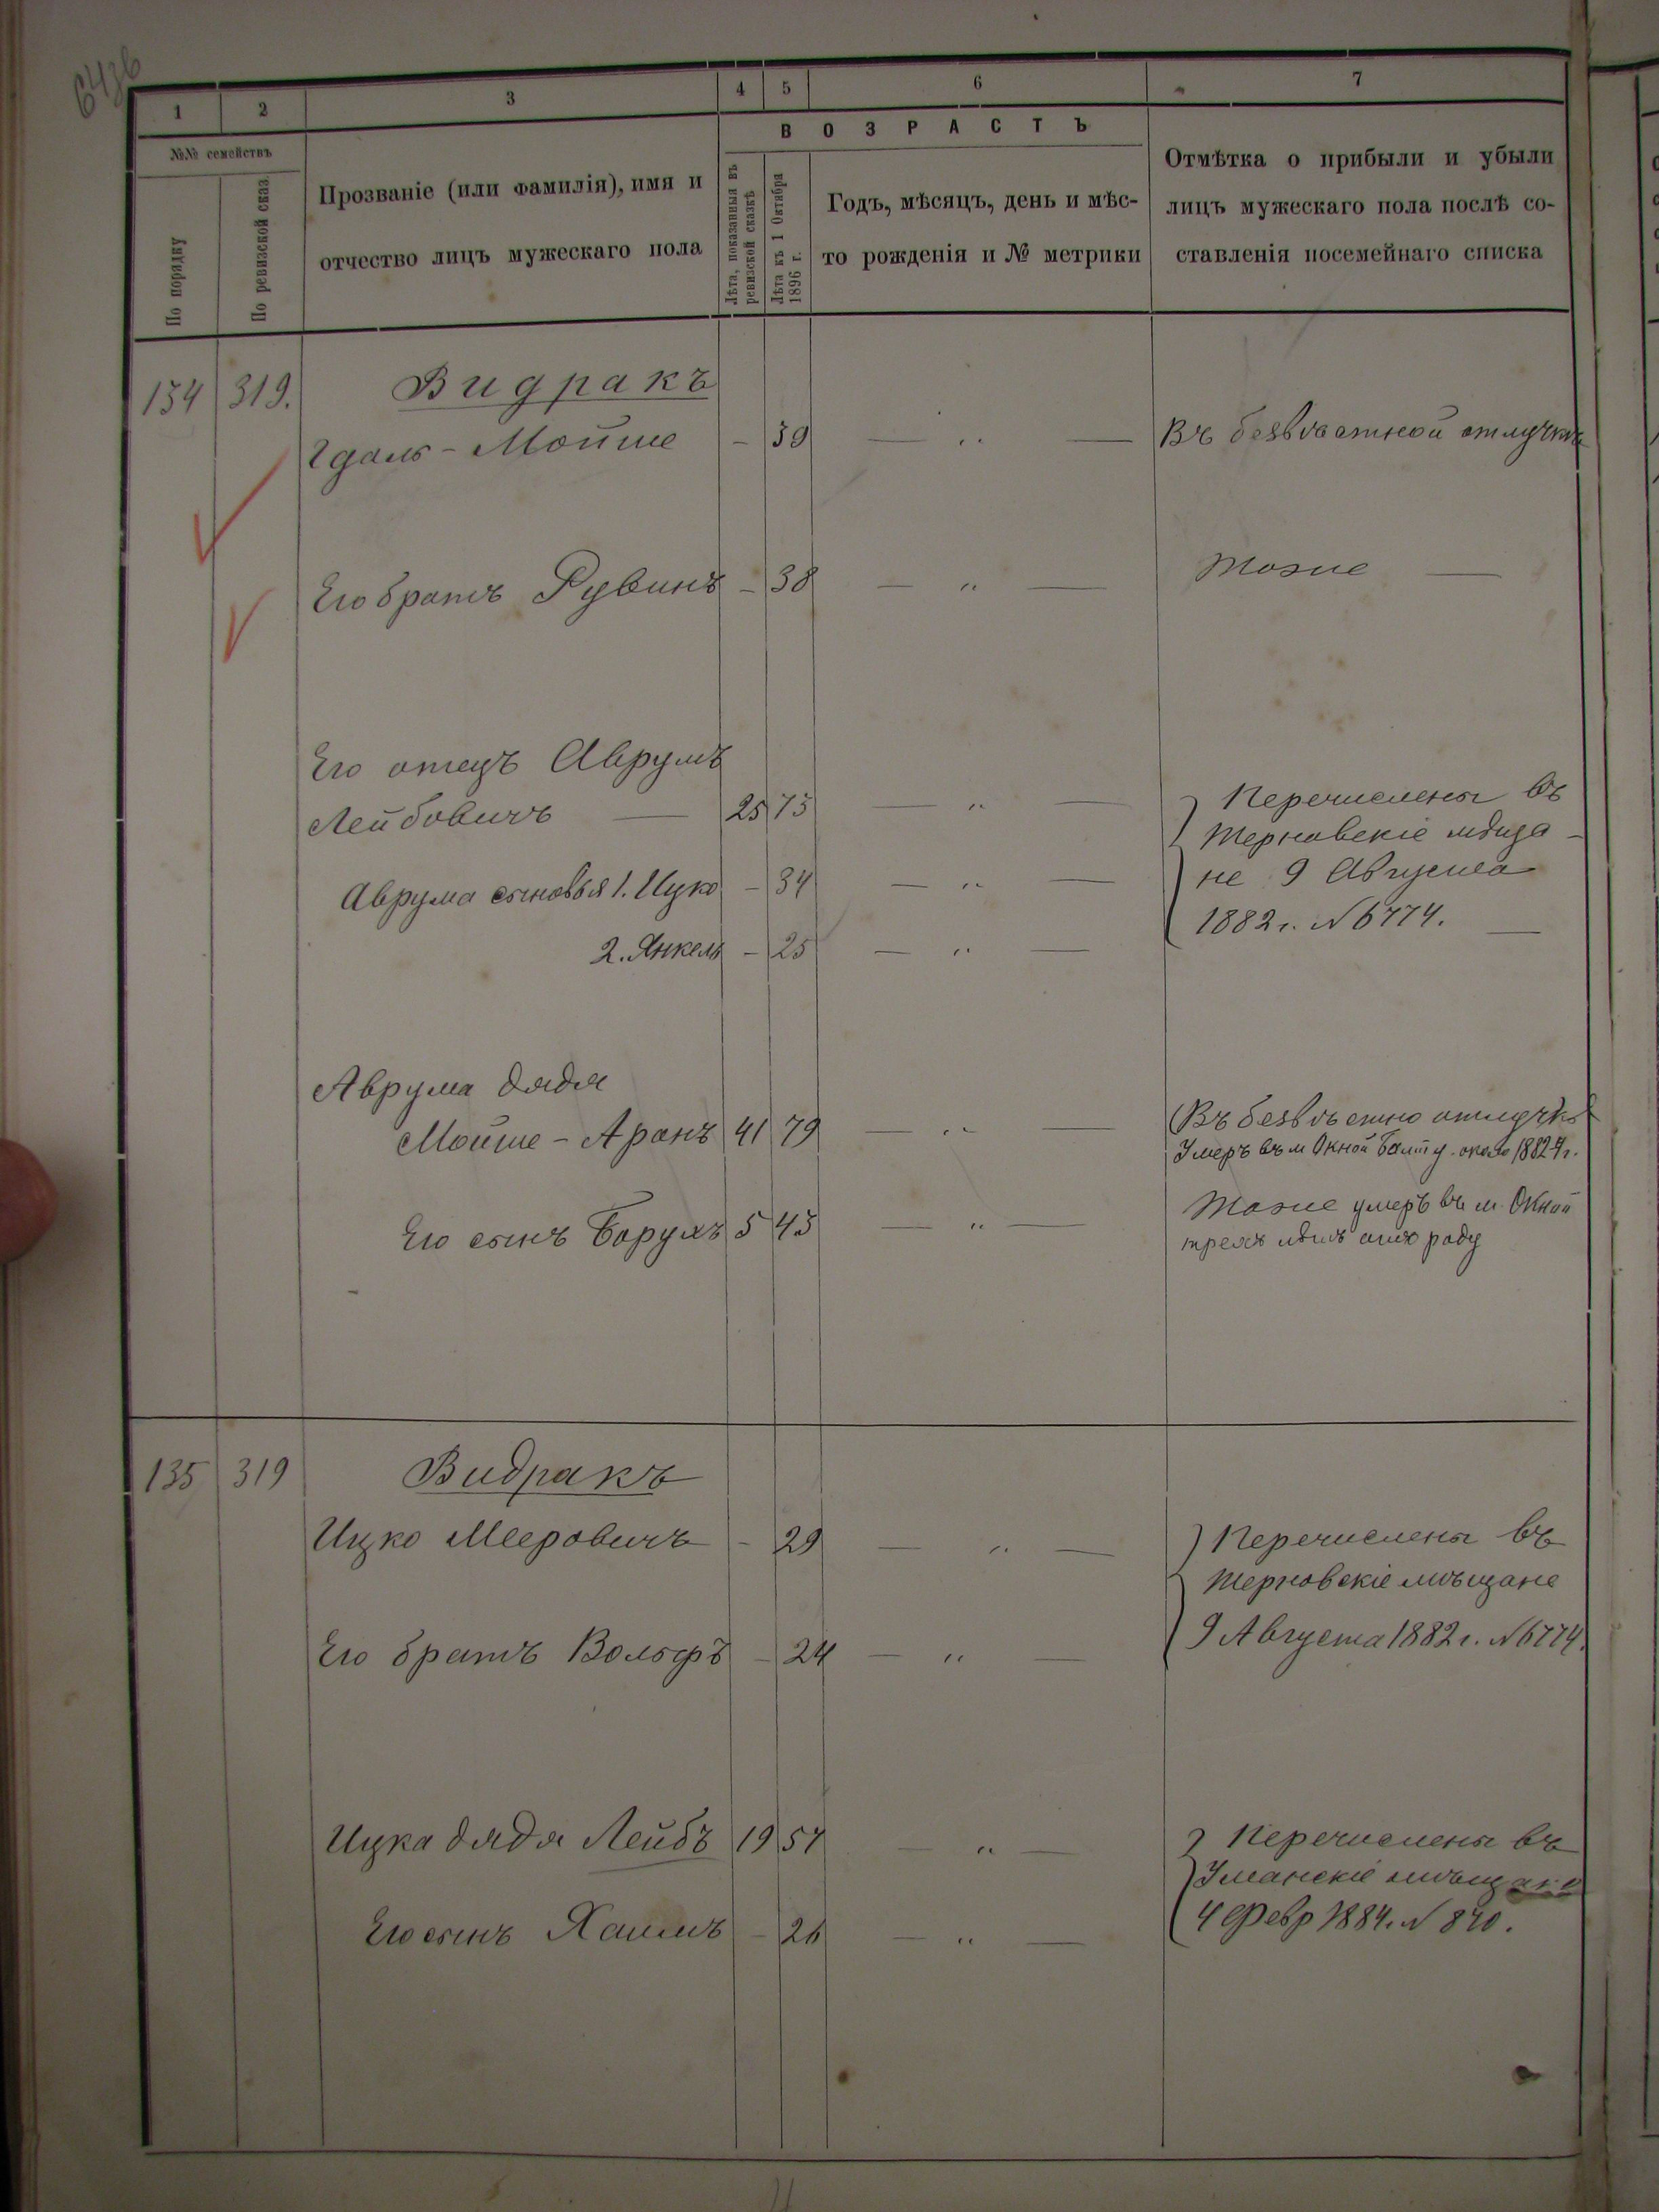 1 2 3 4 5 6 7
№№ семействъ
По порядку
По ревизской сказ
Прозваніе (или фамилія), имя и
отчество лицъ мужескаго пола
ВОЗРАСТЪ
Лѣта, показанныя въ
ревизской сказкѣ
Лѣта къ 1 Октября
1896 г.
Годъ, мѣсяцъ, день и мѣс-
то рожденія и № метрики
Отмѣтка о прибыли и убыли
лицъ мужескаго пола послѣ со-
ставленія посемейнаго списка
134 319. Видракъ
Гдаль-Мойше - 39 — " — Въ безвѣстной отлучкѣ
Его братъ Рувинъ - 38 — " — Тоже —
Его отецъ Аврумъ
Лейбовичъ — 25 75 — " — Перечислены въ
Терновскіе мѣща-
Аврума сыновья 1. Ицко - 34 — " — не 9 Августа
1882 г. № 6774. —
2. Янкель - 25 — " —
Аврума дядя
Мойше-Аронъ 41 79 — " — Въ безвѣстно отлучкѣ
Умеръ въ м Окной Балт у. около 1882 г.
Его сынъ Борухъ 5 43 — " — Тоже умеръ въ м. Окной
трехъ лѣтъ отъ роду
135 319 Видракъ
Ицко Мееровичъ - 29 — " — Перечислены въ
Терновскіе мѣщане
Его братъ Вольфъ - 24 — " — 9 Августа 1882 г. № 6774.
Ицка дядя Лейбъ 19 57 — " — Перечислены въ
Уманскіе мѣщане
Его сынъ Хаимъ - 26 — " — 4 Февр 1884. № 840.